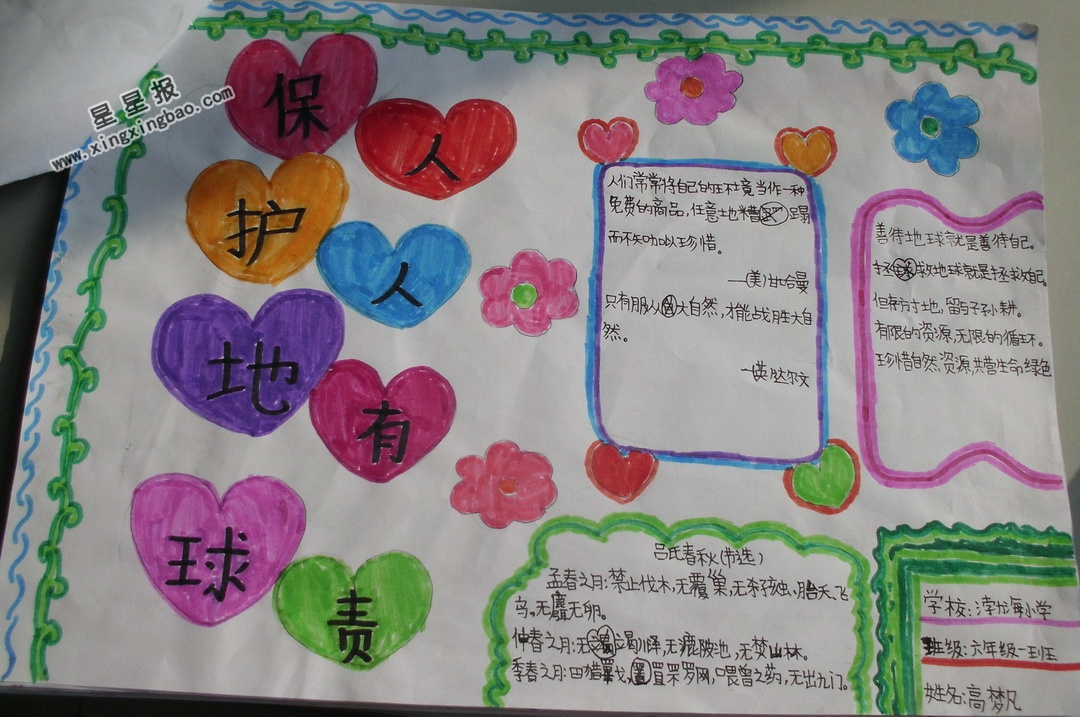 星星报
www.xingxingbao.com
保护地球
人人有责
人们常常将自己的环境当作一种
免费的商品,任意地糟蹋
而不知加以珍惜。
—(美)甘哈曼
只有服从大自然,才能战胜大自
然。
—(英)达尔文
善待地球就是善待自己。
拯救地球就是拯救自己。
但存方寸地,留的子孙耕。
有限的资源,无限的循环。
珍惜自然资源,共营生命绿色
吕氏春秋(节选)
孟春之月:禁止伐木,无覆巢,无杀孩虫、胎夭、飞
鸟。无麛无卵。
仲春之月:无竭川泽,无漉陂池,无焚山林。
季春之月:田猎罼弋,罝罘罗网,喂兽之药,无出九门。
学校:海小学
班级:六年级一班
姓名:高梦凡